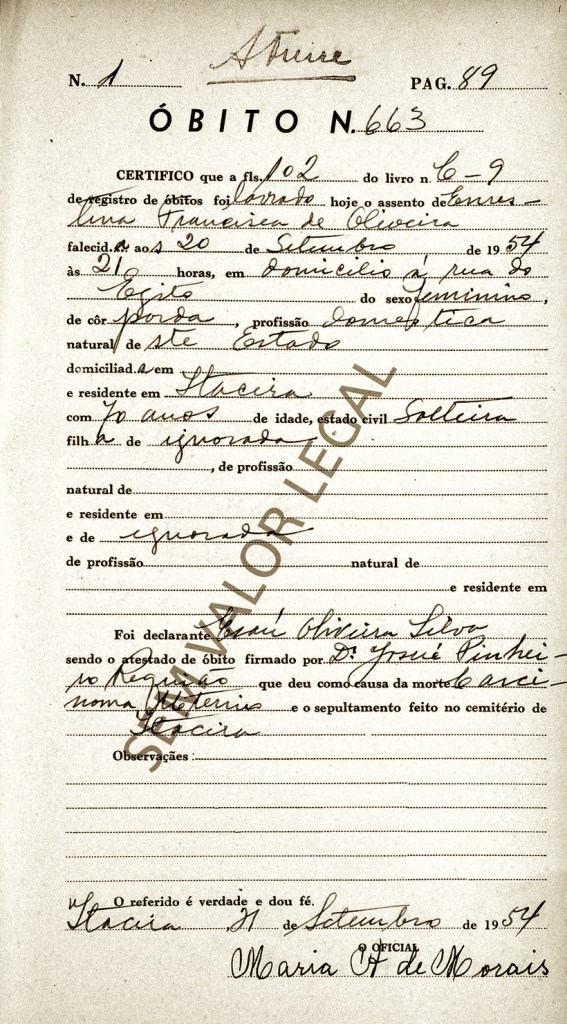 N. 1
PAG. 89
ÓBITO N. 663
CERTIFICO que a fls. 102 do livro n. C-9
de registro de óbitos foi lavrado hoje o assento de
lina Francisca de Oliveira
falecid.a aos 20 de Setembro de 1954
às 21 horas, em domicilio á rua do
Egito do sexo feminino,
de côr parda, profissão domestica
natural de ste Estado
domiciliad.a em
e residente em Itacira
com 70 anos de idade, estado civil Solteira
filha de ignorada
, de profissão
natural de
e residente em
e de ignorada
de profissão natural de
e residente em
Foi declarante Esaú Oliveira Silva
sendo o atestado de óbito firmado por Dr. Josué Pinhei-
ro Requião que deu como causa da morte Carci-
noma e o sepultamento feito no cemitério de
Itacira
Observaçães:
O referido é verdade e dou fé.
Itacira 21 de Setembro de 1954
O OFICIAL
Maria A de Morais
SEM VALOR LEGAL